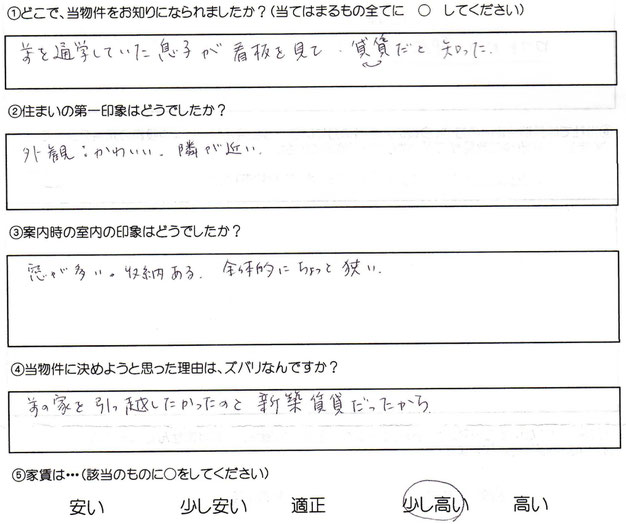 ①どこで、当物件をお知りになられましたか?(当てはまるもの全てに ○ してください)
前を通学していた息子が看板を見て、貸賃だと知った。
②住まいの第一印象はどうでしたか?
外観:かわいい。隣が近い。
③案内時の室内の印象はどうでしたか?
窓が多い。収納ある。全体的にちょっと狭い。
④当物件に決めようと思った理由は、ズバリなんですか?
前の家を引っ越したかったのと新築賃貸だったから
⑤家賃は…(該当のものに○をしてください)
安い 少し安い 適正 少し高い 高い